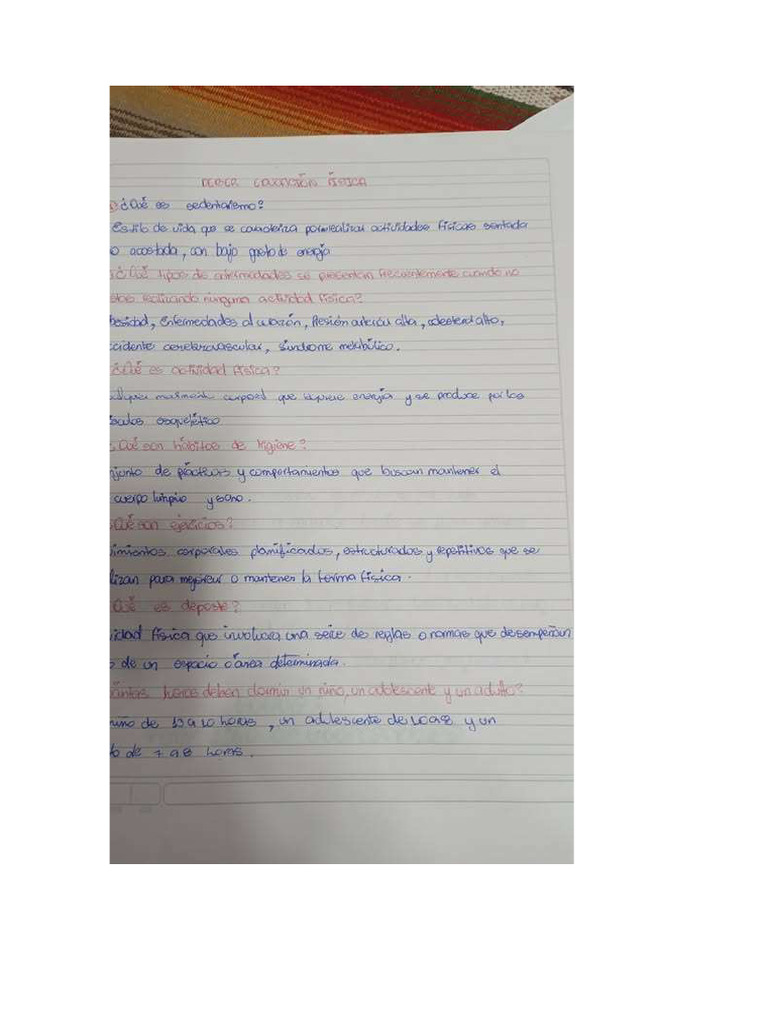 EDUCACIÓN FÍSICA
¿Qué es sedentarismo?
Estilo de vida que se caracteriza por realizar actividades físicas sentada
o acostada, con bajo gasto de energía
¿Qué tipos de enfermedades se presentan frecuentemente cuando no
realizando ninguna actividad física?
besidad, Enfermedades al corazón, Presión arterial alta, colesterol alto,
ccidente cerebrovascular, Síndrome metabólico.
¿Qué es actividad física?
corporal que requiere energía y se produce por los
esquelético
¿Qué son hábitos de higiene?
njunto de prácticas y comportamientos que buscan mantener el
cuerpo limpio y sano.
Qué son ejercicios?
imientos corporales planificados, estructurados y repetitivos que se
lizan para mejorar o mantener la forma física.
Qué es deporte?
idad física que involucra una serie de reglas o normas que desempeñan
de un espacio o área determinada.
ántas horas deben dormir un niño, un adolescente y un adulto?
niño de a 10 horas, un adolescente de 10 a 8 y un
o de 7 a 8 horas.